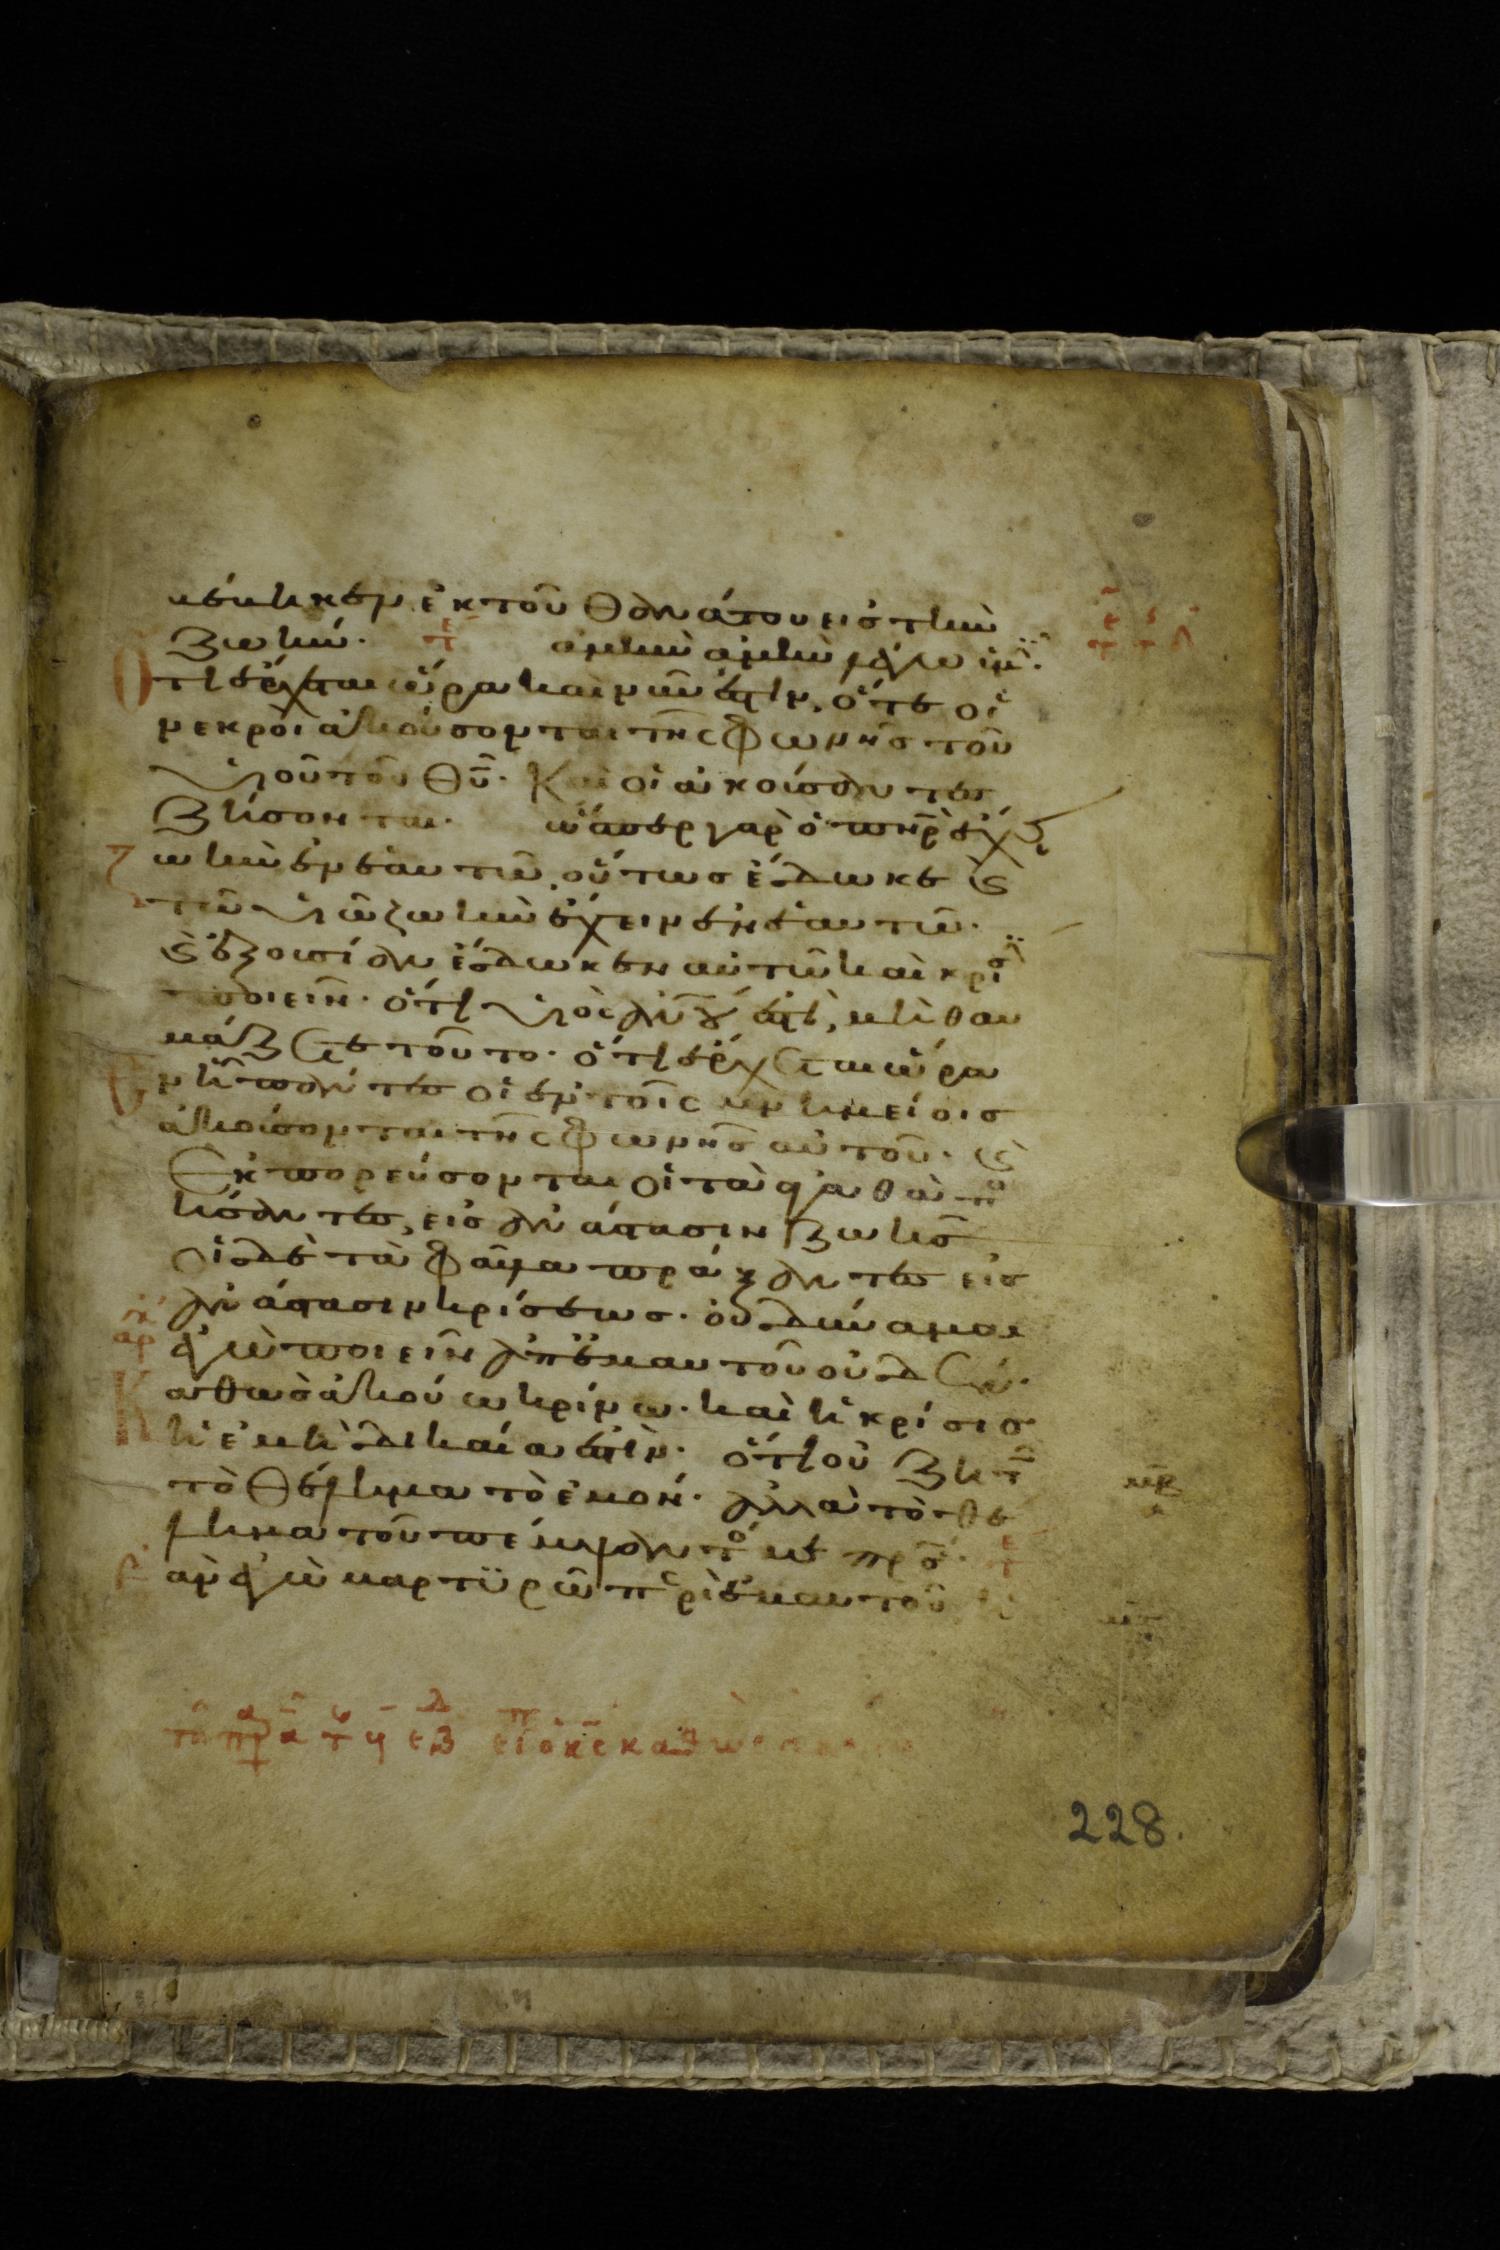 βέβηκεν ἐκ τοῦ θανάτου εἰς τὴν
ζωήν. ἀμὴν ἀμὴν λέγω ὑμῖν·
Ὅτι ἔρχεται ὥρα καὶ νῦν ἐστιν, ὅτε οἱ
νεκροὶ ἀκούσονται τῆς φωνῆς τοῦ
υἱοῦ τοῦ θῦ. Καὶ οἱ ἀκούσαντες
ζήσονται. ὥσπερ γὰρ ὁ πηρ ἔχει ζ
ωὴν ἐν ἑαυτῶ, οὕτως ἔδωκε καὶ
τῶ υἱῶ ζωὴν ἔχειν ἐν ἑαυτῶ.
καὶ ἐξουσίαν ἔδωκεν αὐτῶ καὶ κρίσιν
ποιεῖν. ὅτι υἱὸς ανου ἐστὶ, μὴ θαυ
μάζετε τοῦτο. ὅτι ἔρχεται ὥρα
ἐν ἧ πάντες οἱ ἐν τοῖς μνημείοις
ἀκούσονται τῆς φωνῆς αὐτοῦ. καὶ
ἐκπορεύσονται οἱ τὰ ἀγαθὰ ποι
ήσαντες, εἰς ἀνάστασιν ζωῆς,
οἱ δὲ τὰ φαῦλα πράξαντες εἰς
ἀνάστασιν κρίσεως. οὐ δύναμαι
ἐγὼ ποιεῖν ἀπ' ἐμαυτοῦ οὐδέν.
Καθὼς ἀκούω κρίνω. καὶ ἡ κρίσις
ἡ ἐμὴ δικαία ἐστὶν. ὅτι οὐ ζητῶ
τὸ θέλημα τὸ ἐμόν. ἀλλὰ τὸ θέ
λημα τοῦ πέμψαντός με πρς.
ἐὰν ἐγὼ μαρτυρῶ περὶ ἐμαυτοῦ
228.